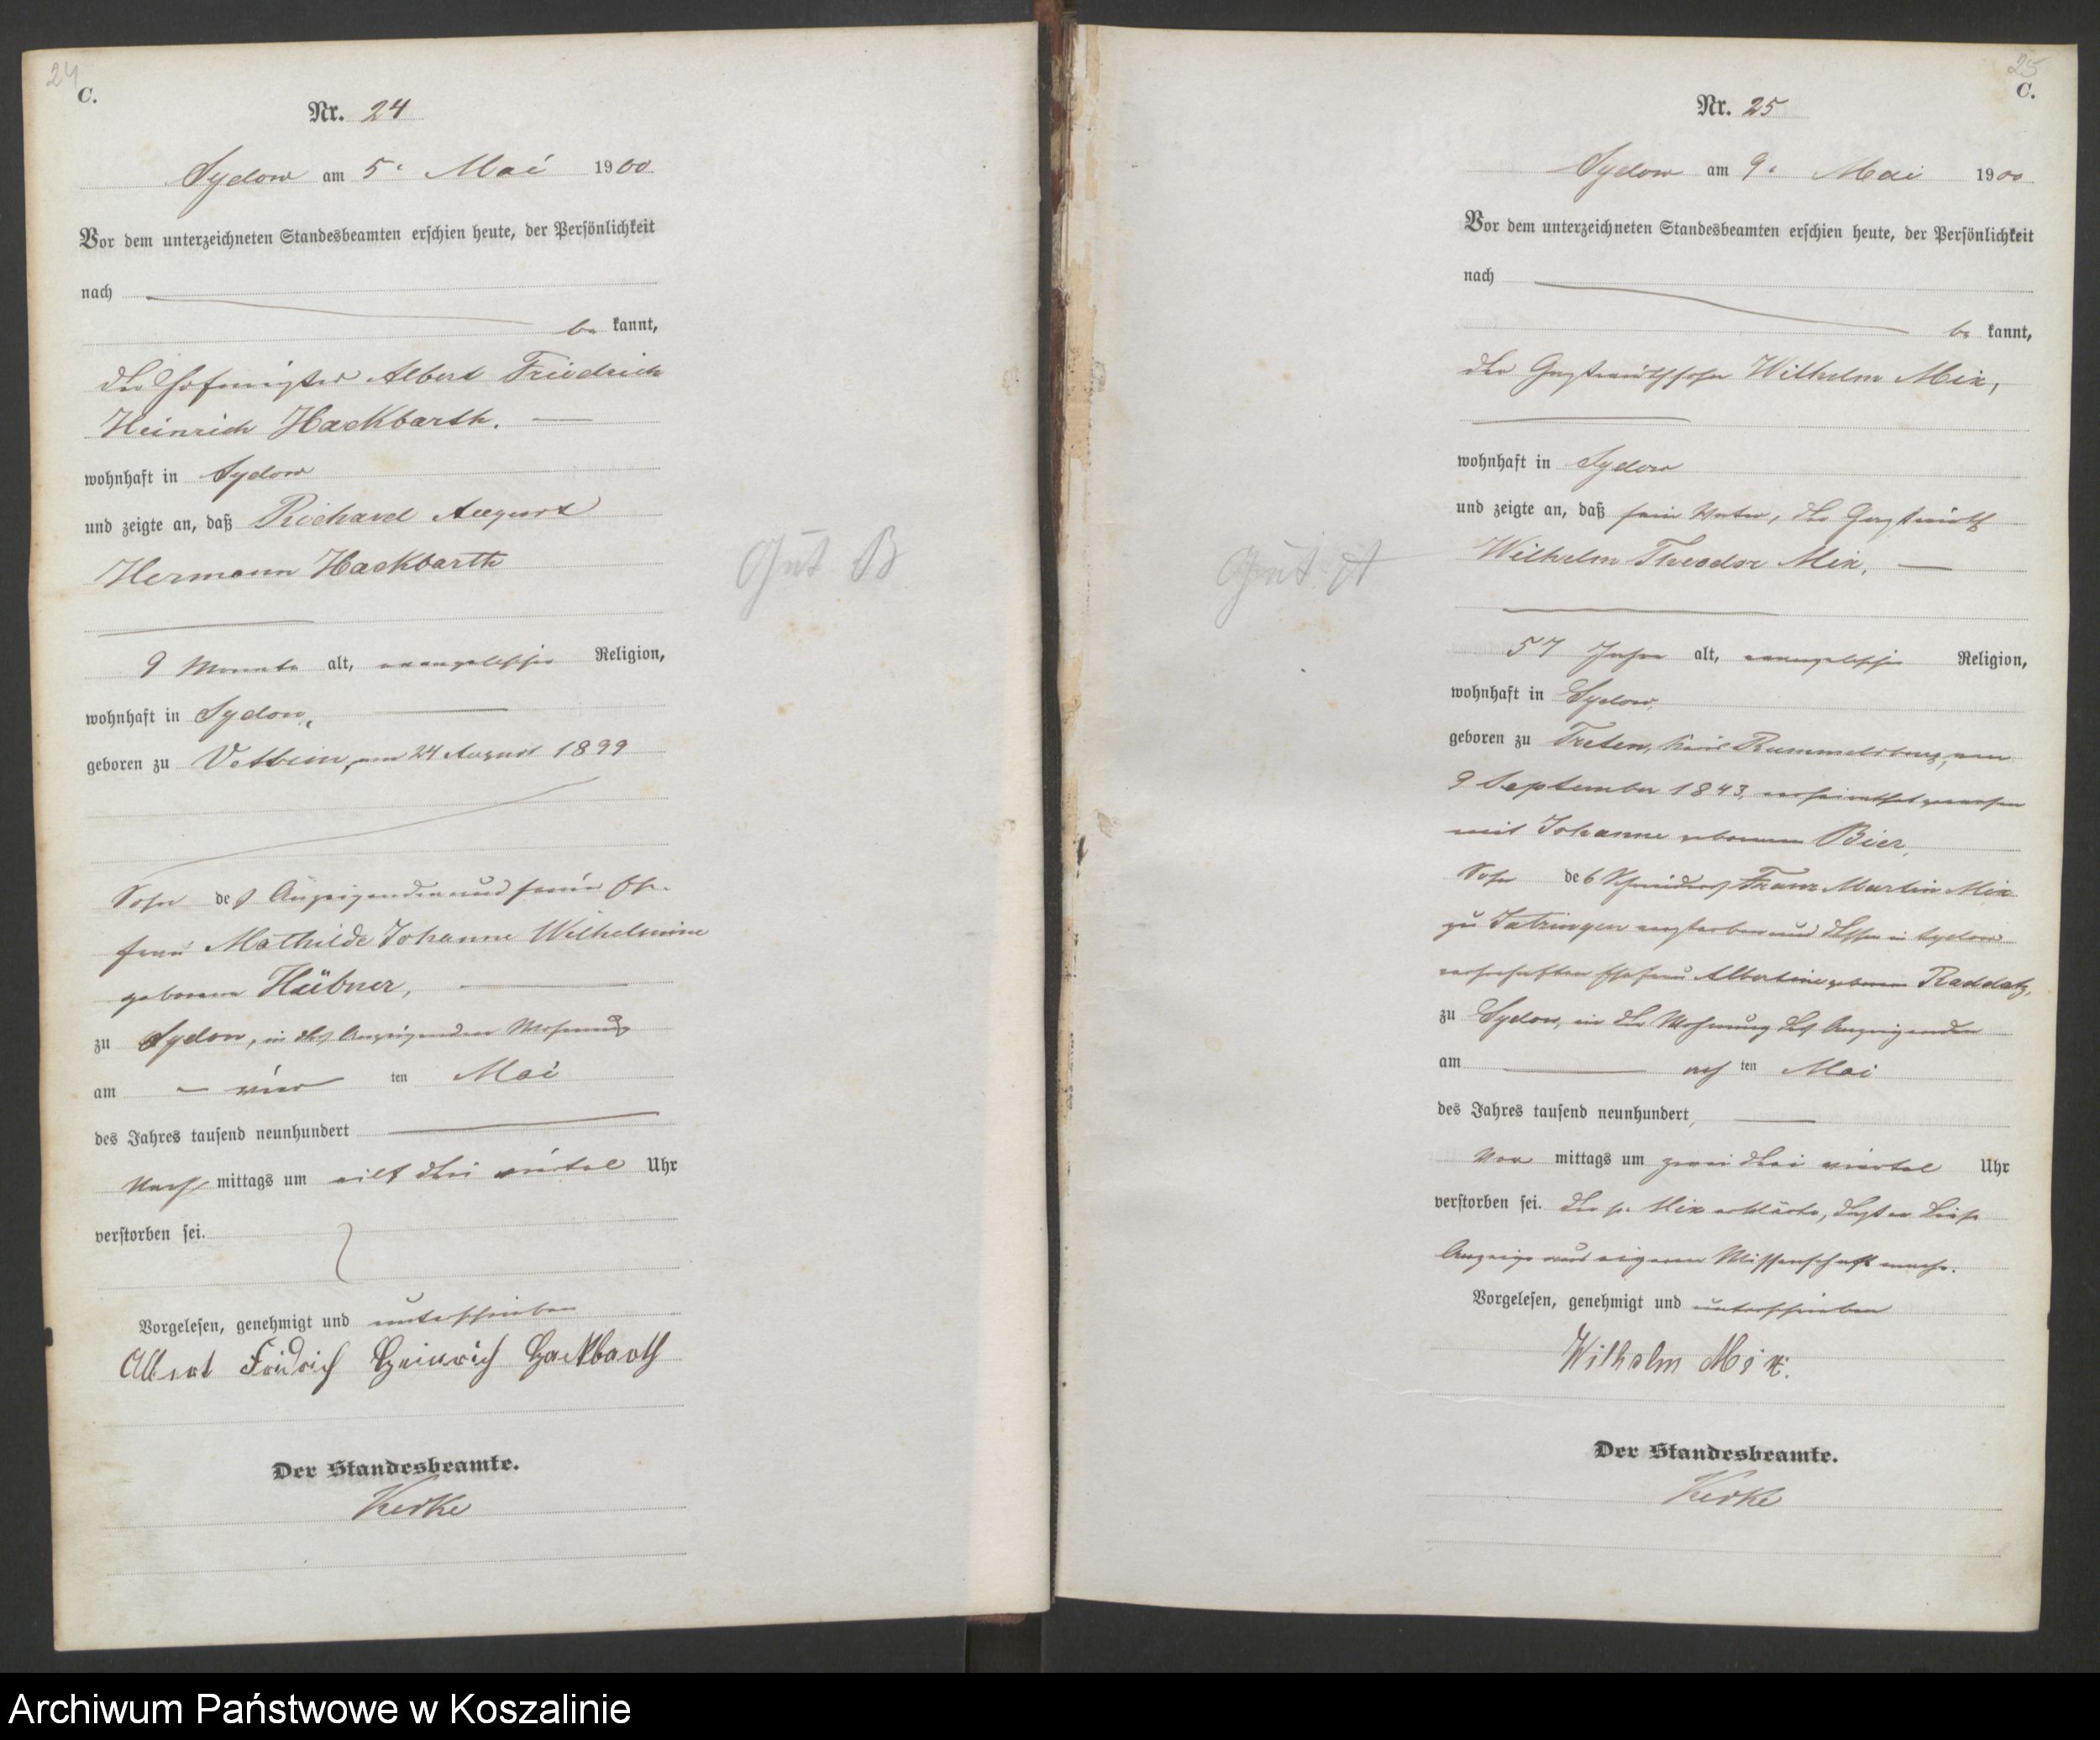 24
C.
Nr. 24
Sydow am 5. Mai 1900
Vor dem unterzeichneten Standesbeamten erschien heute, der Persönlichkeit
nach
be kannt,
der Hofmeister Albert Friedrich
Heinrich Hackbarth.
wohnhaft in Sydow
und zeigte an, daß Richard August
Hermann Hackbarth
9 Monate alt, evangelischer Religion,
wohnhaft in Sydow,
geboren zu Vettrin, am 24 August 1899
Sohn des Anzeigenden und seiner Ehe-
frau Mathilde Johanne Wilhelmine
geborene Hübner,
zu Sydow, in des Anzeigenden Wohnung
am vier ten Mai
des Jahres tausend neunhundert
Nach mittags um elf drei viertel Uhr
verstorben sei.
Vorgelesen, genehmigt und unterschrieben
Albert Fridrich Heinrich Hackbarth
Der Standesbeamte.
Kerke
Gut B
25
C.
Nr. 25
Sydow am 9. Mai 1900
Vor dem unterzeichneten Standesbeamten erschien heute, der Persönlichkeit
nach
be kannt,
der Gastwirthssohn Wilhelm Mix,
wohnhaft in Sydow
und zeigte an, daß sein Vater, der Gastwirth
Wilhelm Theodor Mix,
57 Jahre alt, evangelischer Religion,
wohnhaft in Sydow,
geboren zu Treten, Kreis Rummelsburg, am
9 September 1843, verheirathet gewesen
mit Johanne geborenen Bier,
Sohn des Schneiders Franz Martin Mix
zu verstorben und dessen in Sydow
wohnhaften Ehefrau Albertine geborenen Raddatz,
zu Sydow, in der Wohnung des Anzeigenden
am acht ten Mai
des Jahres tausend neunhundert,
Vor mittags um zwei drei viertel Uhr
verstorben sei. Der p. Mix erklärte, daß er diese
Anzeige aus eigener Wissenschaft mache.
Vorgelesen, genehmigt und unterschrieben
Wilhelm Mix.
Der Standesbeamte.
Kerke
Gut A
Archiwum Państwowe w Koszalinie